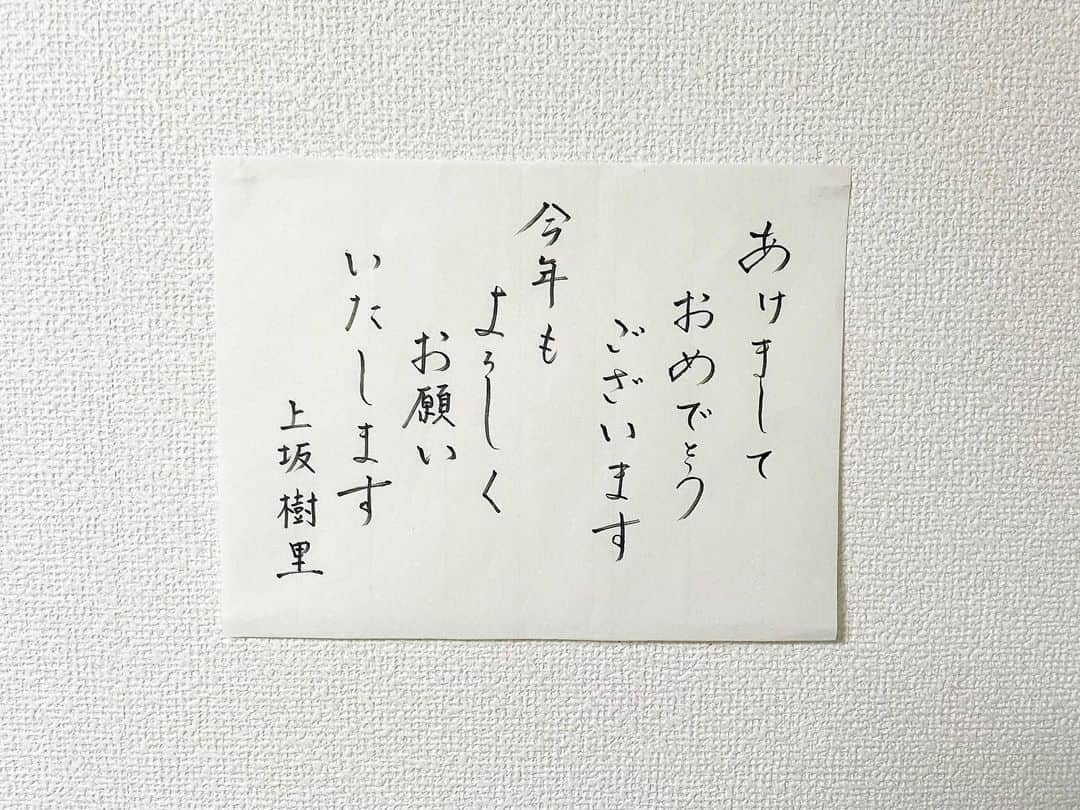 あけまして
おめでとう
ございます
今年も
よろしく
お願い
いたします
上坂樹里